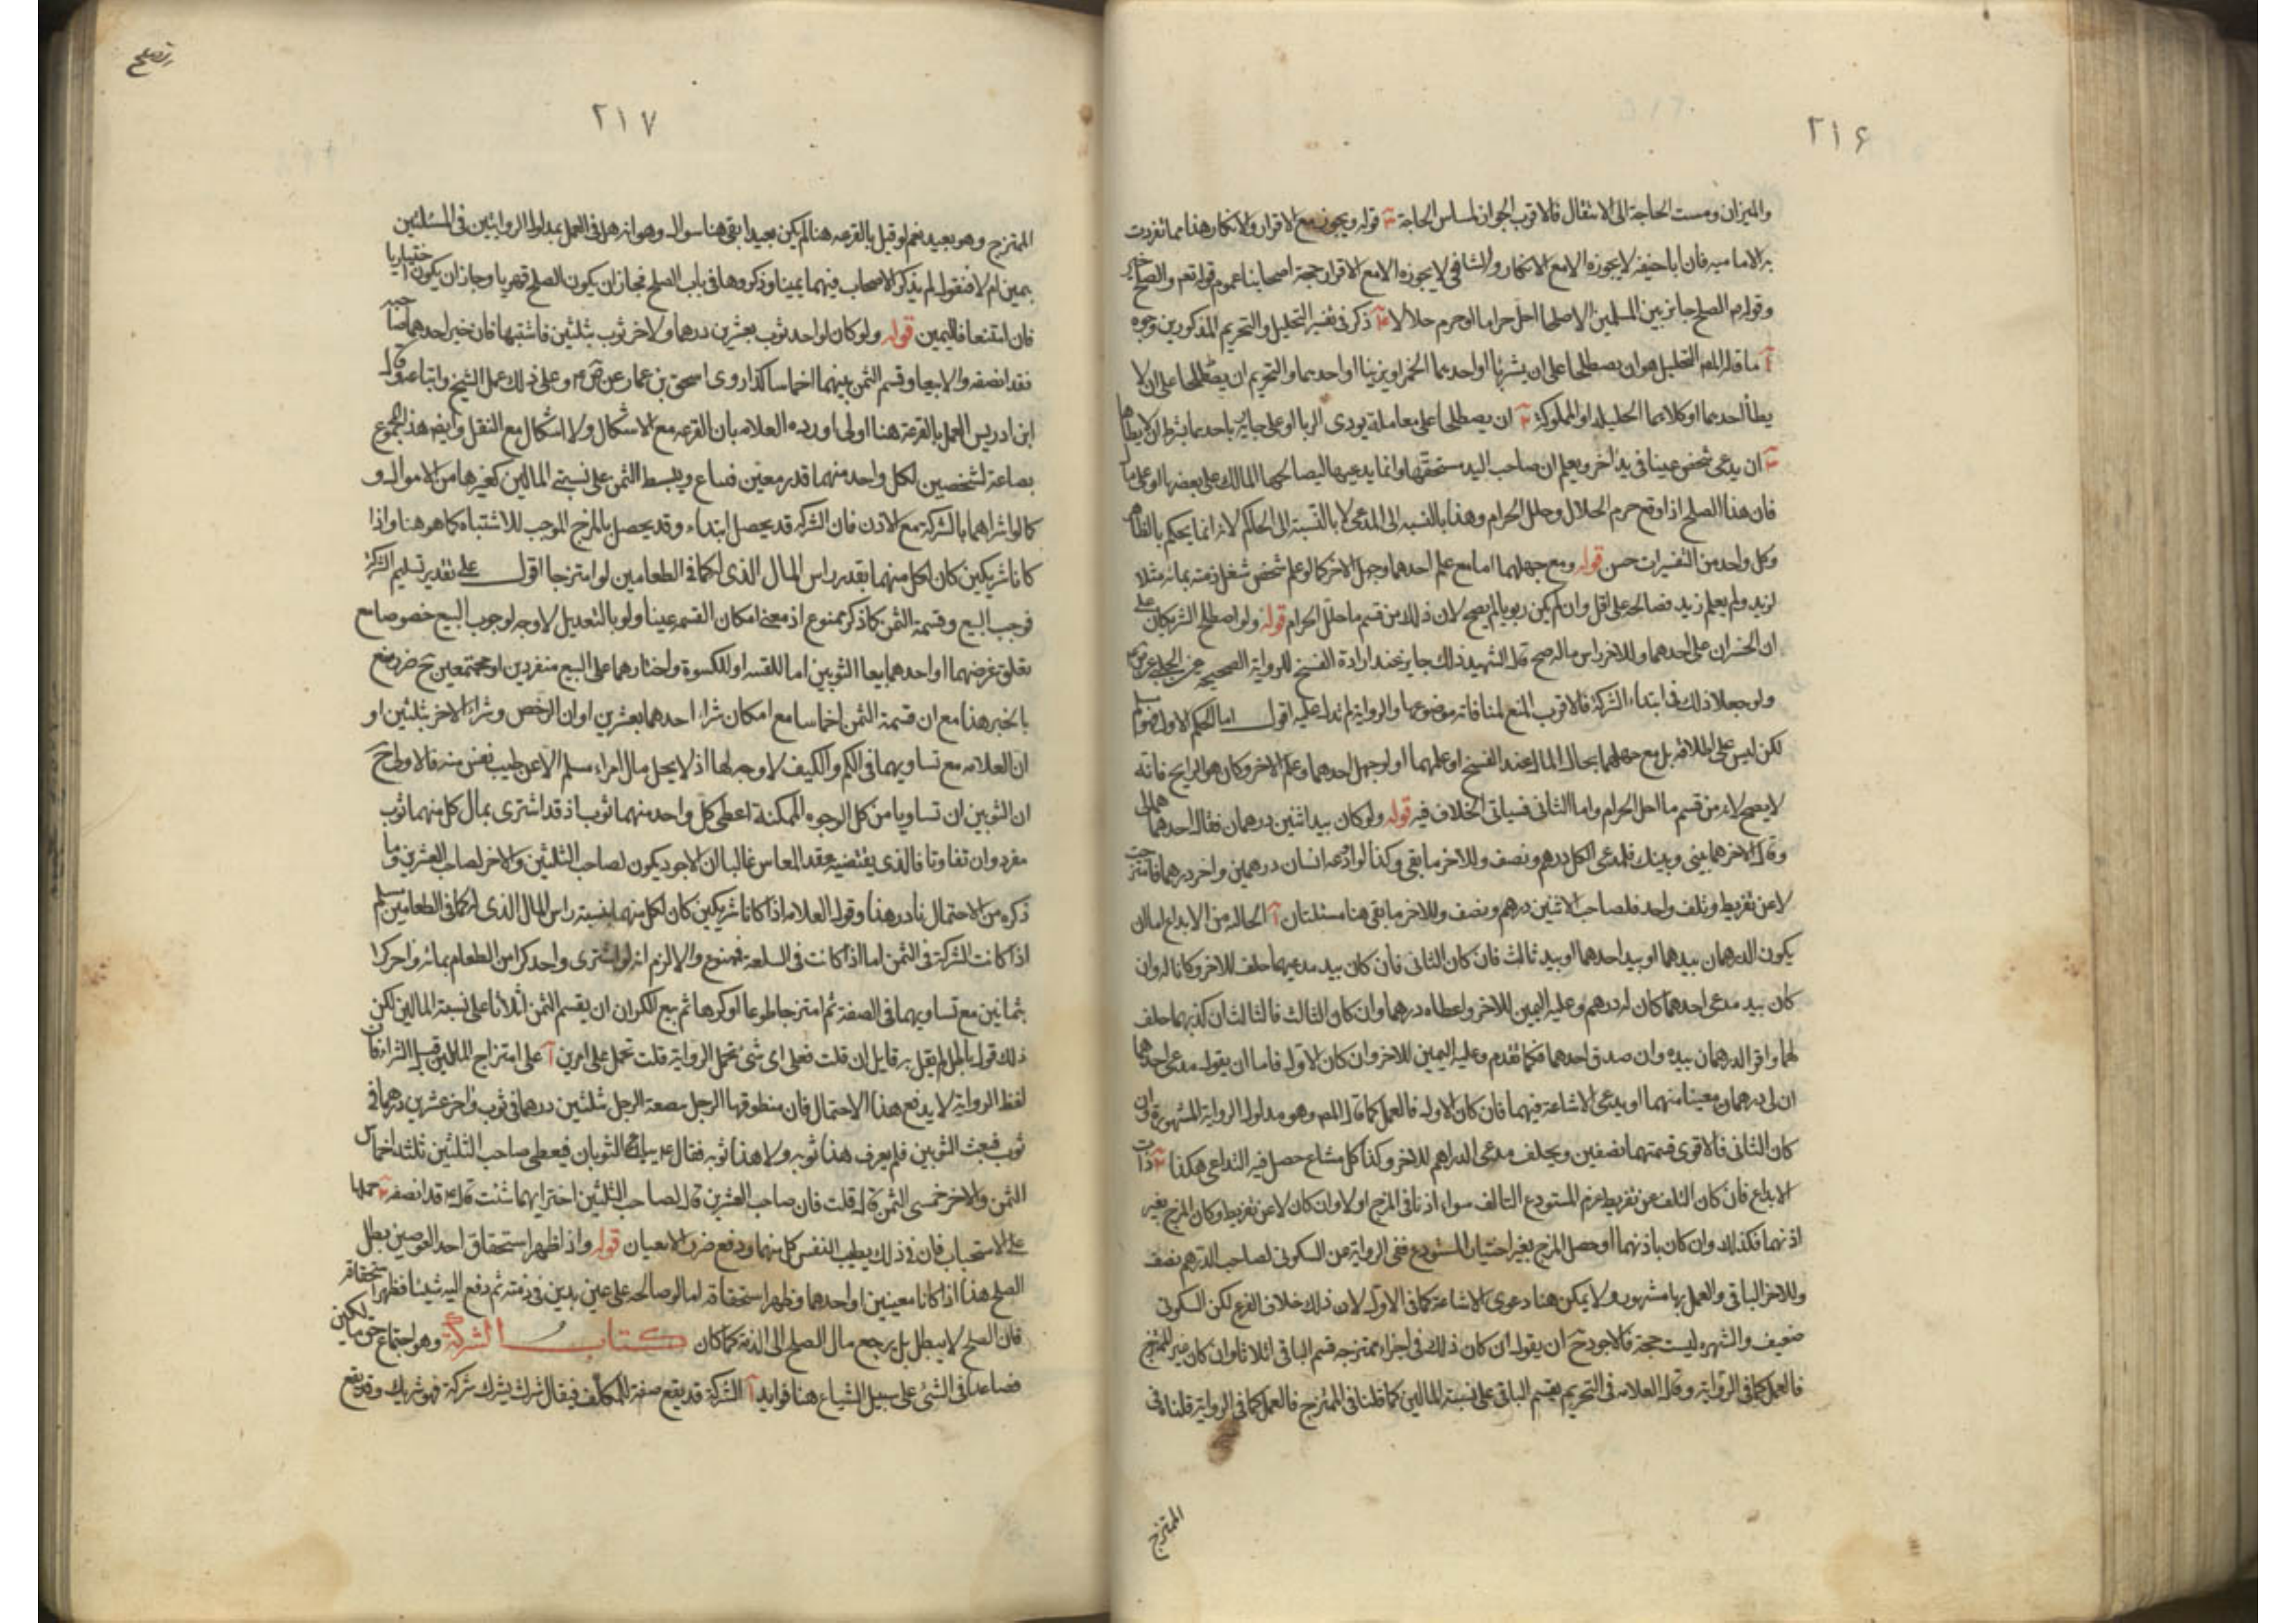 ٢١۶
والميزان ومست الحاجة الى الانتقال فالاقرب الجواز لمساس الحاجة ٣ قوله ويجوز مع الاقرار والانكار هذا مما تفردت
به الاماميه فان اباحنيفه لا يجوزه الا مع الانكار والشافعي لا يجوزه الا مع الاقرار حجة اصحابنا عموم قوله تعم والصلح خير
وقوله م الصلح جايز بين المسلمين الا صلحا احل حراما او حرم حلالا ذكر في تفسير التحليل والتحريم المذكورين وجوه
آ ما قاله المص التحليل هو ان يصطلحا على ان يشربا او احدهما الخمر او يزنيا او احدهما والتحريم ان يصطلحا على ان لا
يطأ احدهما او كلاهما الحليلة او المملوكة ٢ ان يصطلحا على معاملة يودى الربا او على جارية باحدهما بشرط ان لا يطأها
٣ ان يدعى شخص عينا في يد آخر ويعلم ان صاحب اليد مستحقها وانما يدعيها ليصالحها المالك على بعضها او على مال
فان هذا الصلح اذا وقع حرم الحلال وحلل الحرام وهذا بالنسبه الى المدعى لا بالنسبة الى الحاكم لانه انما يحكم بالظاهر
وكل واحد من التفسيرات حسن قوله ومع جهلهما اما مع علم احدهما وجهل الآخر كما لو علم شخص شغل ذمته بمائة مثلا
لزيد ولم يعلم زيد فصالحه على اقل وان لم يكن ربويا لم يصح لان ذلك من قسم ما حلل الحرام قوله ولو اصطلح الشريكان على
ان الخسران على احدهما وللاخر راس ماله صح قال الشهيد ذلك جايز عند ارادة الفسخ للرواية الصحيحه عن الحلبي عن ص م
ولو جعلا ذلك في ابتداء الشركة فالاقرب المنع لمنافاته موضوعها والرواية لم تدل عليه اقول اما الحكم الاول فهو مسلم
لكن ليس على اطلاقه بل مع جهلهما بحال المال عند الفسخ او علمهما او لو جهل احدهما وعلم الاخر وكان هو الرابح فانه
لا يصح لانه من قسم ما احل الحرام واما الثاني فسياتي الخلاف فيه قوله ولو كان بيد اثنين درهمان فقال احدهما هما لى
وقال الاخر هما بيني وبينك فلمدعى الكل درهم ونصف وللاخر ما بقى وكذا لو اودعه انسان درهمين واخر درهما فامتزجت
لا عن تفريط وتلف واحد فلصاحب الاثنين درهم ونصف وللاخر ما بقى هنا مسئلتان آ الخاليه من الايداع اما ان
يكون الدرهمان بيدهما او بيد احدهما او بيد ثالث فان كان الثانى فان كان بيد مدعيهما حلف للاخر وكانا له وان
كان بيد مدعى احدهما كان له درهم وعليه اليمين للاخر واعطاه درهما وان كان الثالث فالثالث ان كذبهما حلف
لهما واقر الدرهمان بيده وان صدق احدهما فكما تقدم وعليه اليمين للاخر وان كان الاول فاما ان يقول مدعى احدهما
ان لى درهما معينا منهما او يدعى الاشاعة فيهما فان كان الاول فالعمل كما قال المص وهو مدلول الرواية المشهورة وان
كان الثاني فالاقوى قسمتهما نصفين ويحلف مدعى الدراهم للاخر وكذا كل مشاع حصل فيه التداعى هكذا ٢ ذات
الايداع فان كان التلف عن تفريط غرم المستودع التالف سواء اذنا في المزج او لا وان كان لا عن تفريط وكان المزج بغير
اذنهما فكذلك وان كان باذنهما او حصل المزج بغير اختيار المستودع ففي الرواية عن السكونى لصاحب الدرهم نصف
وللاخر الباقى والعمل بها مشهور ولا يمكن هنا دعوى الاشاعة كما في الاول لان ذلك خلاف الفرع لكن السكونى
ضعيف والشهره ليست حجة فالاجود ح ان يقول ان كان ذلك في اجزاء ممتزجه قسم الباقى اثلاثا وان كان غير الممتزج
فالعمل كما في الرواية وقال العلامه في التحرير يقسم الباقى على نسبة المالين كما قلنا في الممتزج فالعمل كما في الرواية قلنا في
الممتزج
٢١٧
الممتزج وهو بعيد نعم لو قيل بالقرعه هنا لم يكن بعيدا بقى هنا سوال وهو انه هل في العمل بمدلول الروايتين في المسئلتين
يمين ام لا فنقول لم يذكر الاصحاب فيهما يمينا وذكروها في باب الصلح فجاز ان يكون الصلح قهريا وجاز ان يكون اختياريا
فان امتنعا فاليمين قوله ولو كان لواحد ثوب بعشرين درهما ولاخر ثوب بثلثين فاشتبها فان خير احدهما صاحبه
فقد انصفه والا بيعا وقسم الثمن بينهما اخماسا كذا روى اسحق بن عمار عن ص م وعلى ذلك عمل الشيخ واتباعه وقال
ابن ادريس العمل بالقرعة هنا اولى اورده العلامه بان القرعه مع الاشكال ولا اشكال مع النقل وايضه هذا المجموع
بضاعة لشخصين لكل واحد منهما قدر معين فساع ويبسط الثمن على نسبتى المالين كغيرها من الاموال و
كما لو اشتراهما بالشركة مع الاذن فان الشركه قد يحصل ابتداء وقد يحصل بالمزج الموجب للاشتباه كما هو هنا واذا
كانا شريكين كان لكل منهما بقدر راس المال الذى له كما في الطعامين لو امتزجا اقول على تقدير تسليم الشركة
فوجب البيع وقسمة الثمن كما ذكر ممنوع اذ معنى امكان القسمه عينا ولو بالتعديل لا وجه لوجوب البيع خصوصا مع
تعلق غرضهما او احدهما بيعا الثوبين اما للقسمه او للكسوة واختارهما على البيع منفردين او مجتمعين ح ضرر منع
بالخبر هذا مع ان قسمة الثمن اخماسا مع امكان شراء احدهما بعشرين اوان الرخص وشراء الاخر بثلثين او
ان العلامه مع تساويهما في الكم والكيف لا وجه لها اذ لا يحل مال امراء مسلم الا عن طيب نفس منه فالاولى ح
ان الثوبين ان تساويا من كل الوجوه الممكنة اعطى كل واحد منهما ثوب اذ قد اشترى بمال كل منهما ثوب
مفرد وان تفاوتا فالذى يقتضيه عقد المعاس غالبا ان الاجود يكون لصاحب الثلثين والاخر لصاحب العشرين وما
ذكره من الاحتمال نادر هذا وقول العلامه اذا كانا شريكين كان لكل منهما بنسبة راس المال الذى له كما في الطعامين مسلم
اذا كانت الشركة في الثمن اما اذا كانت في السلعة فممنوع والا لزم انه لو اشترى واحد كرا من الطعام بمائة واخر كرا
بثمانين مع تساويهما في الصفة ثم امتزجا طوعا او كرها ثم بيع الكران ان يقسم الثمن اثلاثا على نسبة المالين لكن
ذلك قول باطل لم يقل به قايل ان قلت فعلى اى شئ تحمل الرواية قلت تحمل على امرين آ على امتزاج المالين قبل الشراء فان
لفظ الرواية لا يدفع هذا الاحتمال فان منطوقها الرجل بضعة الرجل ثلثين درهما في ثوب واخر عشرين درهما في
ثوب فبعث الثوبين فلم يعرف هذا ثوبه ولا هذا ثوبه فقال م يباع الثوبان فيعطى صاحب الثلثين ثلثة اخماس
الثمن والاخر خمسى الثمن قال قلت فان صاحب العشرين قال لصاحب الثلثين اختر ايهما شئت قال م قد انصفه ٢ حملها
على الاستحباب فان في ذلك يطيب النفس كل منهما ودفع ضرر الاعيان قوله واذا ظهر استحقاق احد العوضين بطل
الصلح هذا اذا كانا معينين او احدهما وظهر استحقاقه اما لو صالحه على عين بدين في ذمته ثم دفع اليه شيئا فظهر استحقاقه
فان الصلح لا يبطل بل يرجع مال الصلح الى الذمة كما كان كتاب الشركة وهو اجتماع حق مالكين
فصاعدا في الشئ على سبيل الشياع هنا فوايد آ الشركة قد يقع صفة للمكلف فيقال شرك يشرك شركة فهو شريك وقد يقع